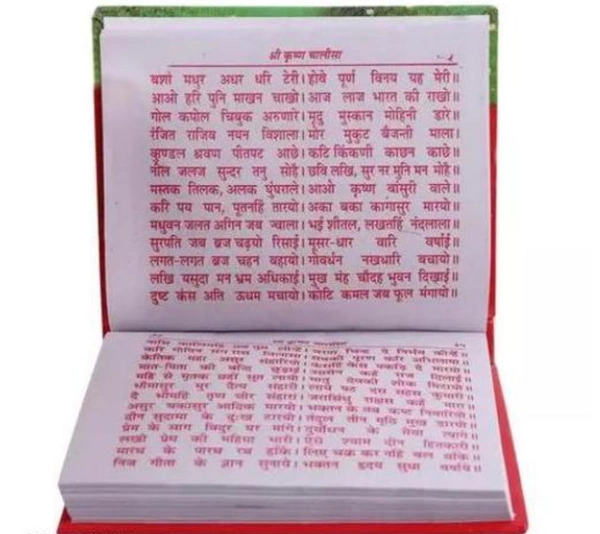 श्री कृष्ण चालीसा
बंशी मधुर अधर धरि टेरी। होवे पूर्ण विनय यह मेरी॥
आओ हरि पुनि माखन चाखो। आज लाज भारत की राखो॥
गोल कपोल चिबुक अरुणारे। मृदु मुस्कान मोहिनी डारे॥
रंजित राजिव नयन विशाला। मोर मुकुट बैजन्ती माला।
कुण्डल श्रवण पीतपट आछे। कटि किंकणी काछन काछे॥
नील जलज सुन्दर तनु सोहै। छवि लखि, सुर नर मुनि मन मोहै॥
मस्तक तिलक, अलक घुंघराले। आओ कृष्ण बांसुरी वाले॥
करि पय पान, पूतनहिं तारयो। अका बका कागासुर मारयो॥
मधुवन जलत अगिन जब ज्वाला। भई शीतल, लखतहिं नंदलाला॥
सुरपति जब ब्रज चढ़यो रिसाई। मूसर-धार वारि वर्षाई॥
लगत-लगत ब्रज चहन बहायो। गोवर्धन नखधारि बचायो॥
लखि यसुदा मन भ्रम अधिकाई। मुख मंह चौदह भुवन दिखाई॥
दुष्ट कंस अति ऊधम मचायो। कोटि कमल जब फूल मंगायो॥
करि गोपिन संग रास विलासा। सबकी पूरण करि अभिलाषा॥
केतिक महा असुर संहारियो। कंसहिं केस पकड़ि दै मारयो॥
मात-पिता की बन्दि छुड़ाई। उग्रसेन कहं राज दिलाई॥
महि से मृतक छहों सुत लायो। मातु देवकी शोक मिटायो॥
भौमासुर मुर दैत्य संहारी। लाये षट दस सहस कुमारी॥
दै भीमहिं तृण चीर संहारा। जरासिंधु राक्षस कहं मारा॥
असुर बकासुर आदिक मारयो। भक्तन के तब कष्ट निवारियो॥
दीन सुदामा के दुःख टारयो। तंदुल तीन मूठि मुख डारयो॥
प्रेम के साग विदुर घर मांगे। दुर्योधन के मेवा त्यागे॥
लखी प्रेम की महिमा भारी। ऐसे श्याम दीन हितकारी॥
मारथ के पारथ रथ हांके। लिए चक्र कर नहिं बल थांके॥
निज गीता के ज्ञान सुनाये। भक्तन हृदय सुधा वर्षाये॥